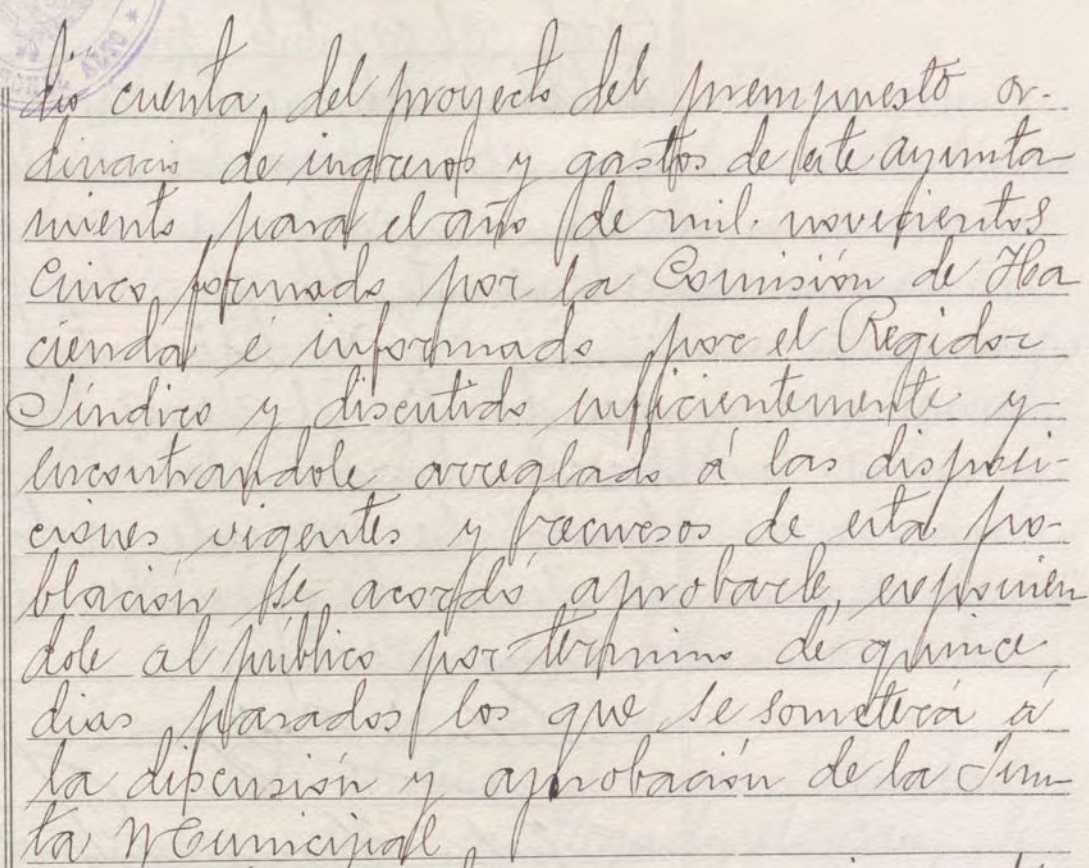 dio cuenta, del proyecto del presupuesto or-
dinario de ingresos y gastos de este ayunta
miento, para el año de mil. novecientos
Cinco, formado por la Comisión de Ha
cienda é informado por el Regidor
Síndico y discutido suficientemente y
encontrandole arreglado á las disposi-
ciones vigentes y recursos de esta po-
blación, se acordó aprobarle, exponien
dole al público por término de quince
dias, pasados los que se someterá á
la discusión y aprobación de la Jun-
ta Municipal,